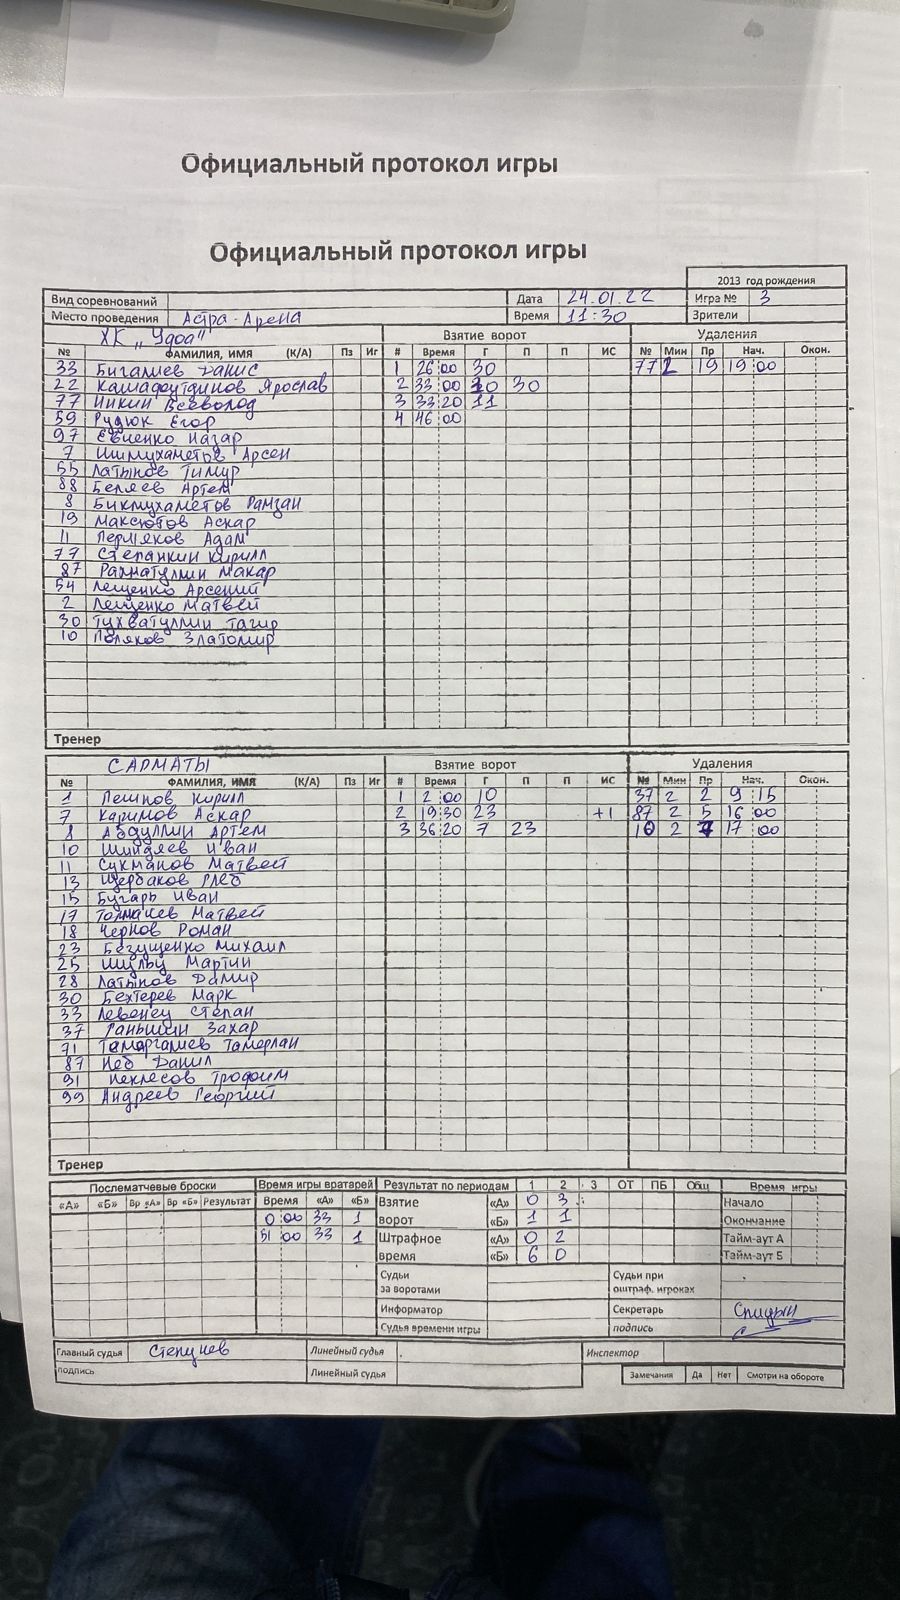 Официальный протокол игры
Официальный протокол игры
2013 год рождения
Вид соревнований Дата 24.01.22 Игра № 3
Место проведения Астра-Арена Время 11:30 Зрители
ХК „Удаа" Взятие ворот Удаления
№ ФАМИЛИЯ, ИМЯ (К/А) Пз Иг # Время Г П П ИС № Мин Пр Нач. Окон.
33 Бигалиев Данис 1 26:00 30 77 2 19 19:00
22 Кашафутдинов Ярослав 2 33:00 10 30
77 Инкин Всеволод 3 33:20 11
59 Рудюк Егор 4 46:00
97 Евиенко Назар
7 Ишмухаметов Арсен
55 Латыпов Тимур
88 Беляев Артем
8 Бикмухаметов Рамзан
19 Максютов Аскар
11 Першяков Адам
77 Степанкин Кирилл
87 Рахматуллин Макар
54 Лещенко Арсений
2 Лещенко Матвей
30 Тухватуллин Тагир
10 Поляков Златомир
Тренер
САРМАТЫ Взятие ворот Удаления
№ ФАМИЛИЯ, ИМЯ (К/А) Пз Иг # Время Г П П ИС № Мин Пр Нач. Окон.
1 Лешнов Кирилл 1 2:00 10 37 2 2 9:15
7 Каримов Аскар 2 19:30 23 +1 87 2 5 16:00
8 Абдуллин Артем 3 36:20 7 23 10 2 7 17:00
10 Шиндяев Иван
11 Сукманов Матвей
13 Щербаков Глеб
15 Бугарь Иван
17 Толмачев Матвей
18 Чернов Роман
23 Безущенко Михаил
25 Шульц Мартин
28 Латыпов Дамир
30 Бехтерев Марк
33 Левенец Степан
37 Ганьшин Захар
71 Тамаргалиев Тамерлан
87 Неб Данил
91 Неклесов Трофим
99 Андреев Георгий
Тренер
Послематчевые броски Время игры вратарей Результат по периодам 1 2 3 ОТ ПБ Общ Время игры
«А» «Б» Вр «А» Вр «Б» Результат Время «А» «Б» Взятие «А» 0 3 Начало
0:00 33 1 ворот «Б» 1 1 Окончание
51:00 33 1 Штрафное «А» 0 2 Тайм-аут А
время «Б» 6 0 Тайм-аут Б
Судьи за воротами Судьи при оштраф. игроках
Информатор Секретарь
Судья времени игры подпись
Главный судья Степунев Линейный судья Инспектор
подпись Линейный судья Замечания Да Нет Смотри на обороте